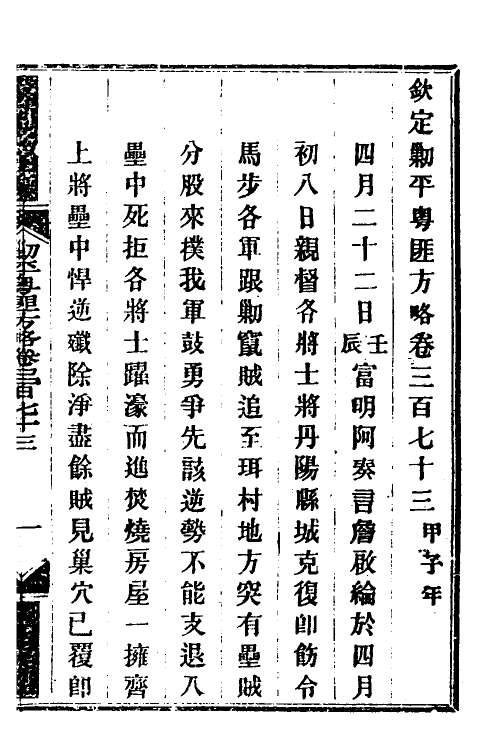 欽定剿平粵匪方略卷三百七十三 甲子年
四月二十二日壬辰富明阿奏言詹啟綸於四月
初八日親督各將士將丹陽縣城克復卽飭令
馬步各軍跟剿竄賊追至珥村地方突有壘賊
分股來撲我軍鼓勇爭先該逆勢不能支退入
壘中死拒各將士躍濠而進焚燒房屋一擁齊
上將壘中悍逆殲除淨盡餘賊見巢穴已覆卽
剿平粵匪方略卷三百七十三 一